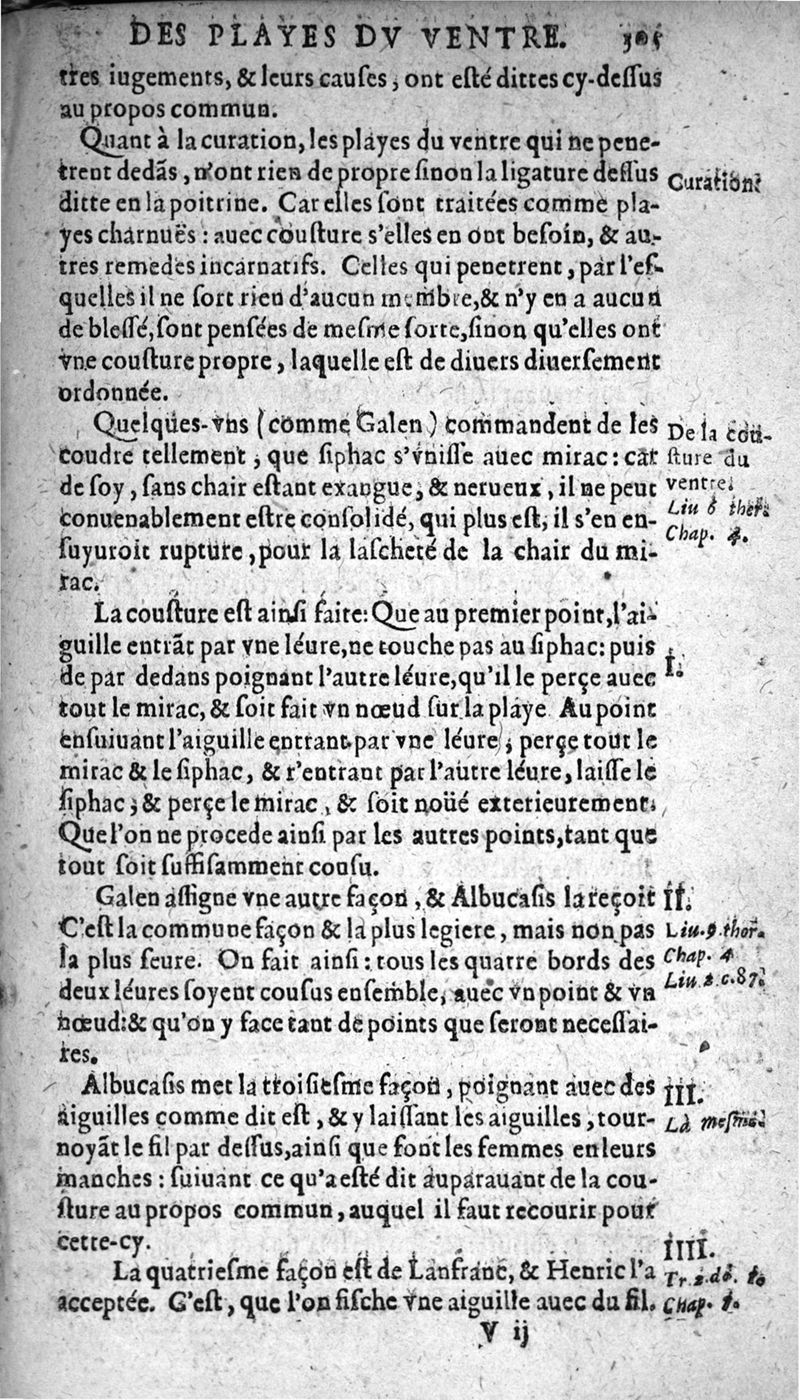 DES PLAYES DV VENTRE. 305
tres iugements, & leurs causes, ont esté dittes cy-dessus
au propos commun.
Quant à la curation, les playes du ventre qui ne pene-
trent dedãs, n'ont rien de propre sinon la ligature dessus
Curation.
ditte en la poitrine. Car elles sont traitées comme pla-
yes charnuës : auec cousture s'elles en ont besoin, & au-
tres remedes incarnatifs. Celles qui penetrent, par l'es-
quelles il ne sort rien d'aucun membre, & n'y en a aucun
de blessé, sont pensées de mesme sorte, sinon qu'elles ont
vne cousture propre, laquelle est de diuers diuersement
ordonnée.
Quelques-vns (comme Galen) commandent de les
De la cou-
coudre tellement, que siphac s'vnisse auec mirac : car
sture du
de soy, sans chair estant exangue, & nerueux, il ne peut
ventre.
conuenablement estre consolidé, qui plus est, il s'en en-
Liu 6 ther.
suyuroit rupture, pour la lascheté de la chair du mi-
Chap. 4.
rac.
La cousture est ainsi faite: Que au premier point, l'ai-
guille entrãt par vne léure, ne touche pas au siphac: puis
I.
de par dedans poignant l'autre léure, qu'il le perçe auec
tout le mirac, & soit fait vn nœud sur la playe Au point
ensuiuant l'aiguille entrant par vne léure, perçe tout le
mirac & le siphac, & r'entrant par l'autre léure, laisse le
siphac, & perçe le mirac, & soit noüé exterieurement.
Que l'on ne procede ainsi par les autres points, tant que
tout soit suffisamment cousu.
Galen assigne vne autre façon, & Albucasis la reçoit
II.
C'est la commune façon & la plus legiere, mais non pas
Liu. 9. ther.
la plus seure. On fait ainsi : tous les quatre bords des
Chap. 4
deux léures soyent cousus ensemble, auec vn point & vn
Liu 2 c. 87.
nœud: & qu'on y face tant de points que seront necessai-
res.
Albucasis met la troisiesme façon, poignant auec des
III.
aiguilles comme dit est, & y laissant les aiguilles, tour-
Là mesme.
noyãt le fil par dessus, ainsi que font les femmes en leurs
manches : suiuant ce qu'a esté dit auparauant de la cou-
sture au propos commun, auquel il faut recourir pour
cette-cy.
IIII.
La quatriesme façon est de Lanfranc, & Henric l'a
Tr. 2. do. 1.
acceptée. C'est, que l'on fische vne aiguille auec du fil.
Chap. 1.
V ij